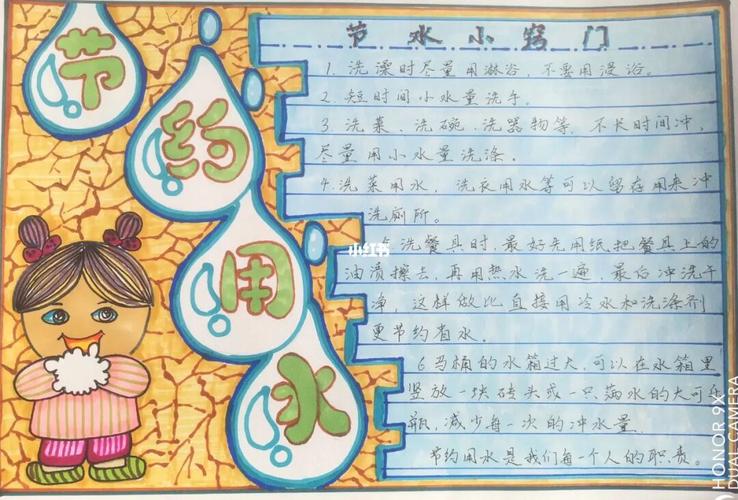 节
约
用
水
节水小窍门
1. 洗澡时尽量用淋浴，不要用浸浴。
2. 短时间小水量洗手。
3. 洗菜、洗碗、洗器物等，不长时间冲，
尽量用小水量洗涤。
4. 洗菜用水，洗衣用水等可以留存用来冲
洗厕所。
洗餐具时，最好先用纸把餐具上的
油渍擦去，再用热水洗一遍，最后冲洗干
净，这样做比直接用冷水和洗涤剂
更节约省水。
6 马桶的水箱过大，可以在水箱里
竖放一块砖头或一只满水的大可乐
瓶，减少每一次的冲水量。
节约用水是我们每一个人的职责。
小红书
HONOR 9X
DUAL CAMERA